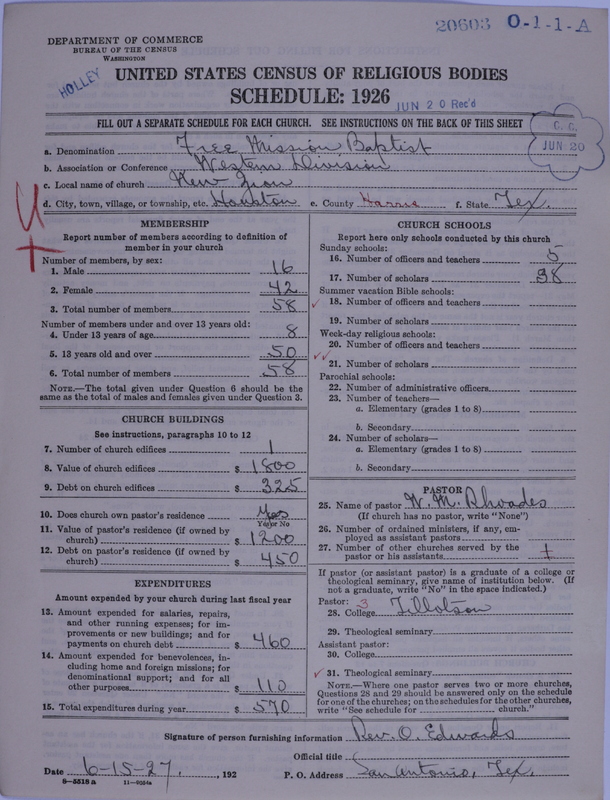 20603 O-1-1-A
DEPARTMENT OF COMMERCE
BUREAU OF THE CENSUS
WASHINGTON
HOLLEY
UNITED STATES CENSUS OF RELIGIOUS BODIES
SCHEDULE: 1926
JUN 20 Rec'd
FILL OUT A SEPARATE SCHEDULE FOR EACH CHURCH. SEE INSTRUCTIONS ON THE BACK OF THIS SHEET
C. C.
JUN 20
a. Denomination Free Mission Baptist
b. Association or Conference Western Division
c. Local name of church New Zion
d. City, town, village, or township, etc. Houston e. County Harris f. State Tex.
MEMBERSHIP
Report number of members according to definition of
member in your church
Number of members, by sex:
1. Male 16
2. Female 42
3. Total number of members 58
Number of members under and over 13 years old:
4. Under 13 years of age 8
5. 13 years old and over 50
6. Total number of members 58
NOTE.—The total given under Question 6 should be the
same as the total of males and females given under Question 3.
CHURCH BUILDINGS
See instructions, paragraphs 10 to 12
7. Number of church edifices 1
8. Value of church edifices $ 1800
9. Debt on church edifices $ 325
10. Does church own pastor's residence Yes
Yes or No
11. Value of pastor's residence (if owned by
church) $ 1200
12. Debt on pastor's residence (if owned by
church) $ 450
EXPENDITURES
Amount expended by your church during last fiscal year
13. Amount expended for salaries, repairs,
and other running expenses; for im-
provements or new buildings; and for
payments on church debt $ 460
14. Amount expended for benevolences, in-
cluding home and foreign missions; for
denominational support; and for all
other purposes $ 110
15. Total expenditures during year $ 570
CHURCH SCHOOLS
Report here only schools conducted by this church
Sunday schools:
16. Number of officers and teachers 5
17. Number of scholars 38
Summer vacation Bible schools:
18. Number of officers and teachers
19. Number of scholars
Week-day religious schools:
20. Number of officers and teachers
21. Number of scholars
Parochial schools:
22. Number of administrative officers
23. Number of teachers—
a. Elementary (grades 1 to 8)
b. Secondary
24. Number of scholars—
a. Elementary (grades 1 to 8)
b. Secondary
PASTOR
25. Name of pastor W. M. Rhoades
(If church has no pastor, write "None")
26. Number of ordained ministers, if any, em-
ployed as assistant pastors
27. Number of other churches served by the
pastor or his assistants
If pastor (or assistant pastor) is a graduate of a college or
theological seminary, give name of institution below. (If
not a graduate, write "No" in the space indicated.)
Pastor: 3
28. College Tillotson
29. Theological seminary
Assistant pastor:
30. College
31. Theological seminary
NOTE.—Where one pastor serves two or more churches,
Questions 28 and 29 should be answered only on the schedule
for one of the churches; on the schedules for the other churches,
write "See schedule for church."
Signature of person furnishing information Rev. O. Edwards
Official title
Date 6-15-27, 192 P. O. Address San Antonio, Tex.
8-5518 a 11-9054a